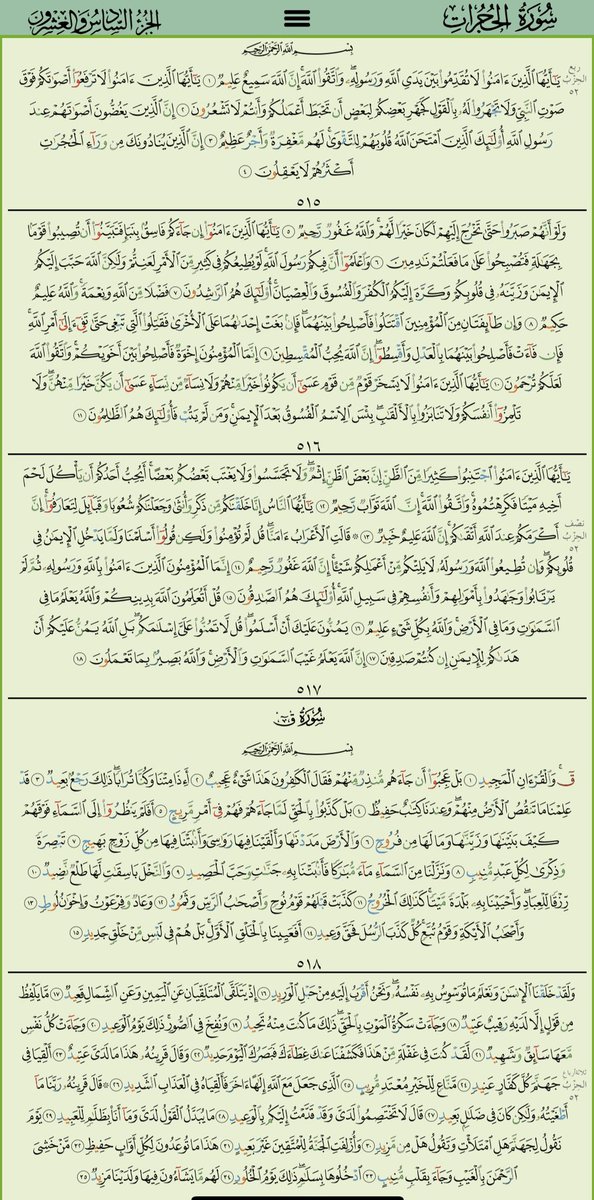 سُورَةُ الحُجُرَاتِ الجُزْءُ السَّادِسُ وَالعِشْرُونَ
بِسْمِ ٱللَّهِ ٱلرَّحْمَٰنِ ٱلرَّحِيمِ
ربع الحزب ٥٢
يَٰٓأَيُّهَا ٱلَّذِينَ ءَامَنُوا۟ لَا تُقَدِّمُوا۟ بَيْنَ يَدَىِ ٱللَّهِ وَرَسُولِهِۦ ۖ وَٱتَّقُوا۟ ٱللَّهَ ۚ إِنَّ ٱللَّهَ سَمِيعٌ عَلِيمٌ ١ يَٰٓأَيُّهَا ٱلَّذِينَ ءَامَنُوا۟ لَا تَرْفَعُوٓا۟ أَصْوَٰتَكُمْ فَوْقَ
صَوْتِ ٱلنَّبِىِّ وَلَا تَجْهَرُوا۟ لَهُۥ بِٱلْقَوْلِ كَجَهْرِ بَعْضِكُمْ لِبَعْضٍ أَن تَحْبَطَ أَعْمَٰلُكُمْ وَأَنتُمْ لَا تَشْعُرُونَ ٢ إِنَّ ٱلَّذِينَ يَغُضُّونَ أَصْوَٰتَهُمْ عِندَ
رَسُولِ ٱللَّهِ أُو۟لَٰٓئِكَ ٱلَّذِينَ ٱمْتَحَنَ ٱللَّهُ قُلُوبَهُمْ لِلتَّقْوَىٰ ۚ لَهُم مَّغْفِرَةٌ وَأَجْرٌ عَظِيمٌ ٣ إِنَّ ٱلَّذِينَ يُنَادُونَكَ مِن وَرَآءِ ٱلْحُجُرَٰتِ
أَكْثَرُهُمْ لَا يَعْقِلُونَ ٤
٥١٥
وَلَوْ أَنَّهُمْ صَبَرُوا۟ حَتَّىٰ تَخْرُجَ إِلَيْهِمْ لَكَانَ خَيْرًا لَّهُمْ ۚ وَٱللَّهُ غَفُورٌ رَّحِيمٌ ٥ يَٰٓأَيُّهَا ٱلَّذِينَ ءَامَنُوٓا۟ إِن جَآءَكُمْ فَاسِقٌۢ بِنَبَإٍ فَتَبَيَّنُوٓا۟ أَن تُصِيبُوا۟ قَوْمًۢا
بِجَهَٰلَةٍ فَتُصْبِحُوا۟ عَلَىٰ مَا فَعَلْتُمْ نَٰدِمِينَ ٦ وَٱعْلَمُوٓا۟ أَنَّ فِيكُمْ رَسُولَ ٱللَّهِ ۚ لَوْ يُطِيعُكُمْ فِى كَثِيرٍ مِّنَ ٱلْأَمْرِ لَعَنِتُّمْ وَلَٰكِنَّ ٱللَّهَ حَبَّبَ إِلَيْكُمُ
ٱلْإِيمَٰنَ وَزَيَّنَهُۥ فِى قُلُوبِكُمْ وَكَرَّهَ إِلَيْكُمُ ٱلْكُفْرَ وَٱلْفُسُوقَ وَٱلْعِصْيَانَ ۚ أُو۟لَٰٓئِكَ هُمُ ٱلرَّٰشِدُونَ ٧ فَضْلًا مِّنَ ٱللَّهِ وَنِعْمَةً ۚ وَٱللَّهُ عَلِيمٌ
حَكِيمٌ ٨ وَإِن طَآئِفَتَانِ مِنَ ٱلْمُؤْمِنِينَ ٱقْتَتَلُوا۟ فَأَصْلِحُوا۟ بَيْنَهُمَا ۖ فَإِنۢ بَغَتْ إِحْدَىٰهُمَا عَلَى ٱلْأُخْرَىٰ فَقَٰتِلُوا۟ ٱلَّتِى تَبْغِى حَتَّىٰ تَفِىٓءَ إِلَىٰٓ أَمْرِ ٱللَّهِ ۚ
فَإِن فَآءَتْ فَأَصْلِحُوا۟ بَيْنَهُمَا بِٱلْعَدْلِ وَأَقْسِطُوٓا۟ ۖ إِنَّ ٱللَّهَ يُحِبُّ ٱلْمُقْسِطِينَ ٩ إِنَّمَا ٱلْمُؤْمِنُونَ إِخْوَةٌ فَأَصْلِحُوا۟ بَيْنَ أَخَوَيْكُمْ ۚ وَٱتَّقُوا۟ ٱللَّهَ
لَعَلَّكُمْ تُرْحَمُونَ ١٠ يَٰٓأَيُّهَا ٱلَّذِينَ ءَامَنُوا۟ لَا يَسْخَرْ قَوْمٌ مِّن قَوْمٍ عَسَىٰٓ أَن يَكُونُوا۟ خَيْرًا مِّنْهُمْ وَلَا نِسَآءٌ مِّن نِّسَآءٍ عَسَىٰٓ أَن يَكُنَّ خَيْرًا مِّنْهُنَّ ۖ وَلَا
تَلْمِزُوٓا۟ أَنفُسَكُمْ وَلَا تَنَابَزُوا۟ بِٱلْأَلْقَٰبِ ۖ بِئْسَ ٱلِٱسْمُ ٱلْفُسُوقُ بَعْدَ ٱلْإِيمَٰنِ ۚ وَمَن لَّمْ يَتُبْ فَأُو۟لَٰٓئِكَ هُمُ ٱلظَّٰلِمُونَ ١١
٥١٦
يَٰٓأَيُّهَا ٱلَّذِينَ ءَامَنُوا۟ ٱجْتَنِبُوا۟ كَثِيرًا مِّنَ ٱلظَّنِّ إِنَّ بَعْضَ ٱلظَّنِّ إِثْمٌ ۖ وَلَا تَجَسَّسُوا۟ وَلَا يَغْتَب بَّعْضُكُم بَعْضًا ۚ أَيُحِبُّ أَحَدُكُمْ أَن يَأْكُلَ لَحْمَ
أَخِيهِ مَيْتًا فَكَرِهْتُمُوهُ ۚ وَٱتَّقُوا۟ ٱللَّهَ ۚ إِنَّ ٱللَّهَ تَوَّابٌ رَّحِيمٌ ١٢ يَٰٓأَيُّهَا ٱلنَّاسُ إِنَّا خَلَقْنَٰكُم مِّن ذَكَرٍ وَأُنثَىٰ وَجَعَلْنَٰكُمْ شُعُوبًا وَقَبَآئِلَ لِتَعَارَفُوٓا۟ ۚ إِنَّ
نصف الحزب ٥٢
أَكْرَمَكُمْ عِندَ ٱللَّهِ أَتْقَىٰكُمْ ۚ إِنَّ ٱللَّهَ عَلِيمٌ خَبِيرٌ ١٣ ۞ قَالَتِ ٱلْأَعْرَابُ ءَامَنَّا ۖ قُل لَّمْ تُؤْمِنُوا۟ وَلَٰكِن قُولُوٓا۟ أَسْلَمْنَا وَلَمَّا يَدْخُلِ ٱلْإِيمَٰنُ فِى
قُلُوبِكُمْ ۖ وَإِن تُطِيعُوا۟ ٱللَّهَ وَرَسُولَهُۥ لَا يَلِتْكُم مِّنْ أَعْمَٰلِكُمْ شَيْـًٔا ۚ إِنَّ ٱللَّهَ غَفُورٌ رَّحِيمٌ ١٤ إِنَّمَا ٱلْمُؤْمِنُونَ ٱلَّذِينَ ءَامَنُوا۟ بِٱللَّهِ وَرَسُولِهِۦ ثُمَّ لَمْ
يَرْتَابُوا۟ وَجَٰهَدُوا۟ بِأَمْوَٰلِهِمْ وَأَنفُسِهِمْ فِى سَبِيلِ ٱللَّهِ ۚ أُو۟لَٰٓئِكَ هُمُ ٱلصَّٰدِقُونَ ١٥ قُلْ أَتُعَلِّمُونَ ٱللَّهَ بِدِينِكُمْ وَٱللَّهُ يَعْلَمُ مَا فِى
ٱلسَّمَٰوَٰتِ وَمَا فِى ٱلْأَرْضِ ۚ وَٱللَّهُ بِكُلِّ شَىْءٍ عَلِيمٌ ١٦ يَمُنُّونَ عَلَيْكَ أَنْ أَسْلَمُوا۟ ۖ قُل لَّا تَمُنُّوا۟ عَلَىَّ إِسْلَٰمَكُم ۖ بَلِ ٱللَّهُ يَمُنُّ عَلَيْكُمْ أَنْ
هَدَىٰكُمْ لِلْإِيمَٰنِ إِن كُنتُمْ صَٰدِقِينَ ١٧ إِنَّ ٱللَّهَ يَعْلَمُ غَيْبَ ٱلسَّمَٰوَٰتِ وَٱلْأَرْضِ ۚ وَٱللَّهُ بَصِيرٌۢ بِمَا تَعْمَلُونَ ١٨
٥١٧
سُورَةُ ق
بِسْمِ ٱللَّهِ ٱلرَّحْمَٰنِ ٱلرَّحِيمِ
قٓ ۚ وَٱلْقُرْءَانِ ٱلْمَجِيدِ ١ بَلْ عَجِبُوٓا۟ أَن جَآءَهُم مُّنذِرٌ مِّنْهُمْ فَقَالَ ٱلْكَٰفِرُونَ هَٰذَا شَىْءٌ عَجِيبٌ ٢ أَءِذَا مِتْنَا وَكُنَّا تُرَابًا ۖ ذَٰلِكَ رَجْعٌۢ بَعِيدٌ ٣ قَدْ
عَلِمْنَا مَا تَنقُصُ ٱلْأَرْضُ مِنْهُمْ ۖ وَعِندَنَا كِتَٰبٌ حَفِيظٌۢ ٤ بَلْ كَذَّبُوا۟ بِٱلْحَقِّ لَمَّا جَآءَهُمْ فَهُمْ فِىٓ أَمْرٍ مَّرِيجٍ ٥ أَفَلَمْ يَنظُرُوٓا۟ إِلَى ٱلسَّمَآءِ فَوْقَهُمْ
كَيْفَ بَنَيْنَٰهَا وَزَيَّنَّٰهَا وَمَا لَهَا مِن فُرُوجٍ ٦ وَٱلْأَرْضَ مَدَدْنَٰهَا وَأَلْقَيْنَا فِيهَا رَوَٰسِىَ وَأَنۢبَتْنَا فِيهَا مِن كُلِّ زَوْجٍۭ بَهِيجٍ ٧ تَبْصِرَةً
وَذِكْرَىٰ لِكُلِّ عَبْدٍ مُّنِيبٍ ٨ وَنَزَّلْنَا مِنَ ٱلسَّمَآءِ مَآءً مُّبَٰرَكًا فَأَنۢبَتْنَا بِهِۦ جَنَّٰتٍ وَحَبَّ ٱلْحَصِيدِ ٩ وَٱلنَّخْلَ بَاسِقَٰتٍ لَّهَا طَلْعٌ نَّضِيدٌ ١٠
رِّزْقًا لِّلْعِبَادِ ۖ وَأَحْيَيْنَا بِهِۦ بَلْدَةً مَّيْتًا ۚ كَذَٰلِكَ ٱلْخُرُوجُ ١١ كَذَّبَتْ قَبْلَهُمْ قَوْمُ نُوحٍ وَأَصْحَٰبُ ٱلرَّسِّ وَثَمُودُ ١٢ وَعَادٌ وَفِرْعَوْنُ وَإِخْوَٰنُ لُوطٍ ١٣
وَأَصْحَٰبُ ٱلْأَيْكَةِ وَقَوْمُ تُبَّعٍ ۚ كُلٌّ كَذَّبَ ٱلرُّسُلَ فَحَقَّ وَعِيدِ ١٤ أَفَعَيِينَا بِٱلْخَلْقِ ٱلْأَوَّلِ ۚ بَلْ هُمْ فِى لَبْسٍ مِّنْ خَلْقٍ جَدِيدٍ ١٥
٥١٨
وَلَقَدْ خَلَقْنَا ٱلْإِنسَٰنَ وَنَعْلَمُ مَا تُوَسْوِسُ بِهِۦ نَفْسُهُۥ ۖ وَنَحْنُ أَقْرَبُ إِلَيْهِ مِنْ حَبْلِ ٱلْوَرِيدِ ١٦ إِذْ يَتَلَقَّى ٱلْمُتَلَقِّيَانِ عَنِ ٱلْيَمِينِ وَعَنِ ٱلشِّمَالِ قَعِيدٌ ١٧ مَّا يَلْفِظُ
مِن قَوْلٍ إِلَّا لَدَيْهِ رَقِيبٌ عَتِيدٌ ١٨ وَجَآءَتْ سَكْرَةُ ٱلْمَوْتِ بِٱلْحَقِّ ۖ ذَٰلِكَ مَا كُنتَ مِنْهُ تَحِيدُ ١٩ وَنُفِخَ فِى ٱلصُّورِ ۚ ذَٰلِكَ يَوْمُ ٱلْوَعِيدِ ٢٠ وَجَآءَتْ كُلُّ نَفْسٍ
مَّعَهَا سَآئِقٌ وَشَهِيدٌ ٢١ لَّقَدْ كُنتَ فِى غَفْلَةٍ مِّنْ هَٰذَا فَكَشَفْنَا عَنكَ غِطَآءَكَ فَبَصَرُكَ ٱلْيَوْمَ حَدِيدٌ ٢٢ وَقَالَ قَرِينُهُۥ هَٰذَا مَا لَدَىَّ عَتِيدٌ ٢٣ أَلْقِيَا فِى
ثلاثة أرباع الحزب ٥٢
جَهَنَّمَ كُلَّ كَفَّارٍ عَنِيدٍ ٢٤ مَّنَّاعٍ لِّلْخَيْرِ مُعْتَدٍ مُّرِيبٍ ٢٥ ٱلَّذِى جَعَلَ مَعَ ٱللَّهِ إِلَٰهًا ءَاخَرَ فَأَلْقِيَاهُ فِى ٱلْعَذَابِ ٱلشَّدِيدِ ٢٦ ۞ قَالَ قَرِينُهُۥ رَبَّنَا مَآ
أَطْغَيْتُهُۥ وَلَٰكِن كَانَ فِى ضَلَٰلٍۭ بَعِيدٍ ٢٧ قَالَ لَا تَخْتَصِمُوا۟ لَدَىَّ وَقَدْ قَدَّمْتُ إِلَيْكُم بِٱلْوَعِيدِ ٢٨ مَا يُبَدَّلُ ٱلْقَوْلُ لَدَىَّ وَمَآ أَنَا۠ بِظَلَّٰمٍ لِّلْعَبِيدِ ٢٩ يَوْمَ
نَقُولُ لِجَهَنَّمَ هَلِ ٱمْتَلَأْتِ وَتَقُولُ هَلْ مِن مَّزِيدٍ ٣٠ وَأُزْلِفَتِ ٱلْجَنَّةُ لِلْمُتَّقِينَ غَيْرَ بَعِيدٍ ٣١ هَٰذَا مَا تُوعَدُونَ لِكُلِّ أَوَّابٍ حَفِيظٍ ٣٢ مَّنْ خَشِىَ
ٱلرَّحْمَٰنَ بِٱلْغَيْبِ وَجَآءَ بِقَلْبٍ مُّنِيبٍ ٣٣ ٱدْخُلُوهَا بِسَلَٰمٍ ۖ ذَٰلِكَ يَوْمُ ٱلْخُلُودِ ٣٤ لَهُم مَّا يَشَآءُونَ فِيهَا وَلَدَيْنَا مَزِيدٌ ٣٥